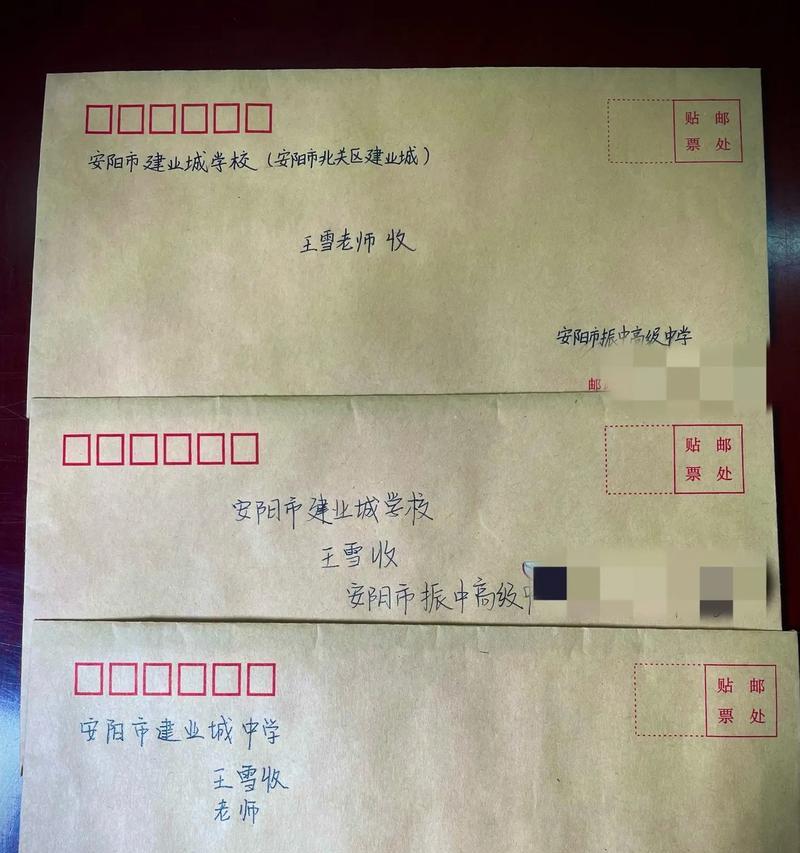 贴 邮
票 处
安阳市建业城学校（安阳市北关区建业城）
王雪老师 收
安阳市振中高级中学
邮
贴 邮
票 处
安阳市建业城学校
王雪收
安阳市振中高级
贴 邮
票 处
安阳市建业城中学
王雪收
老师